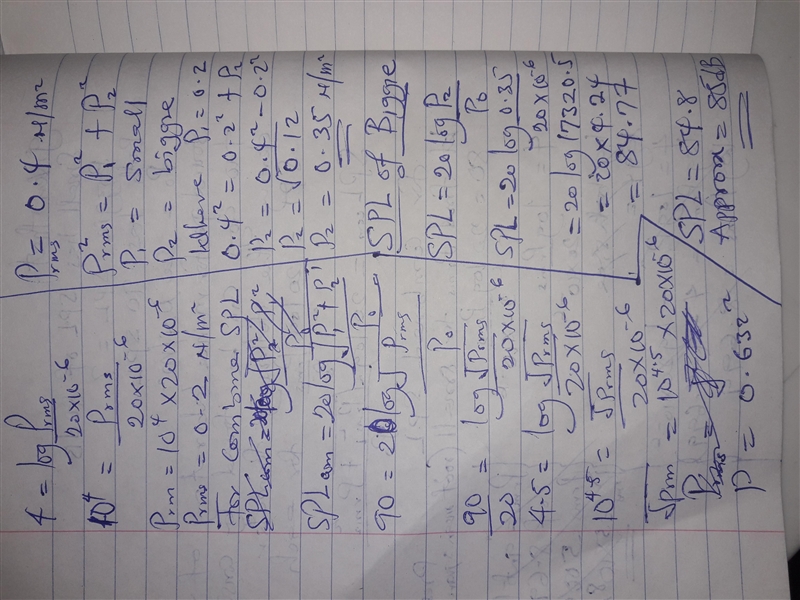 4 = log Prms
20×10-6
10⁴ = Prms
20×10-6
Prm = 10⁴ × 20×10-6
Prms = 0.2 N/m²
For Combine SPL
SPLam = 20log √P₁²+P₂²
P₀
90 = 20log √Prms
P₀
90 = log √Prms
20 20×10-6
4.5 = log √Prms
20×10-6
10^4.5 = √Prms
20×10-6
√Prm = 10^4.5 × 20×10-6
P = 0.632²
Prms = 0.4 N/m²
P²rms = P₁² + P₂²
P₁ = Small
P₂ = bigger
Where P₁ = 0.2
0.4² = 0.2² + P₂
P₂ = 0.4² - 0.2²
P₂ = √0.12
P₂ = 0.35 N/m²
SPL of Biggre
SPL = 20 log P₂
P₀
SPL = 20 log 0.35
20×10-6
= 20 log 17320.5
= 20×4.24
= 84.77
SPL = 84.8
Approx = 85dB